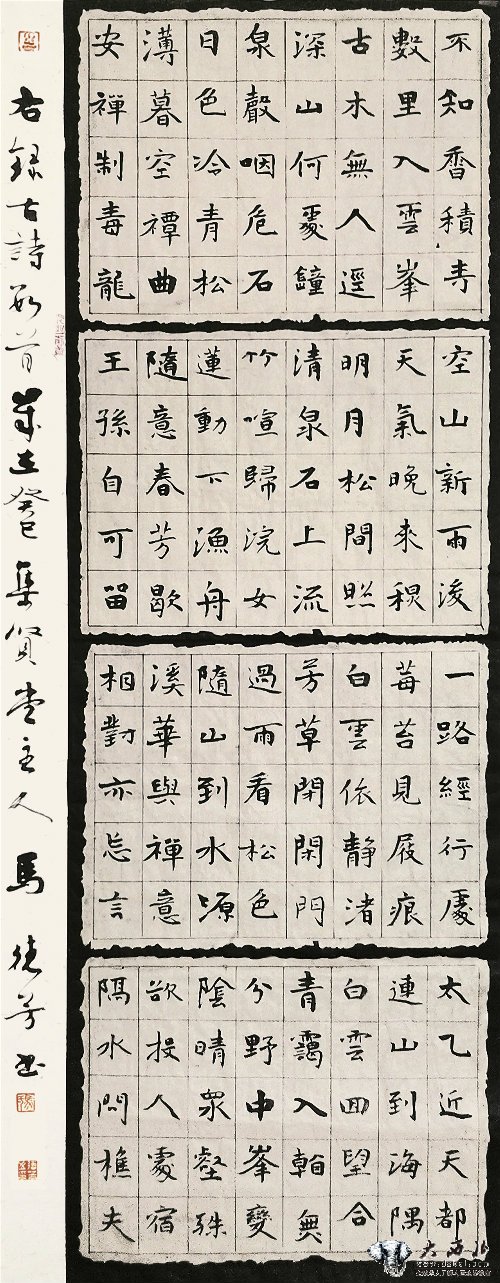 不知香積寺
數里入雲峯
古木無人逕
深山何處鐘
泉聲咽危石
日色冷青松
薄暮空潭曲
安禪制毒龍
空山新雨後
天氣晚來秋
明月松間照
清泉石上流
竹喧歸浣女
蓮動下漁舟
隨意春芳歇
王孫自可留
一路經行處
莓苔見屐痕
白雲依靜渚
芳草閉閑門
過雨看松色
隨山到水源
溪華與禪意
相對亦忘言
太乙近天都
連山到海隅
白雲回望合
青靄入看無
分野中峯變
陰晴衆壑殊
欲投人處宿
隔水問樵夫
右録古詩数首歲在癸巳集賢堂主人馬德芳书
大西北